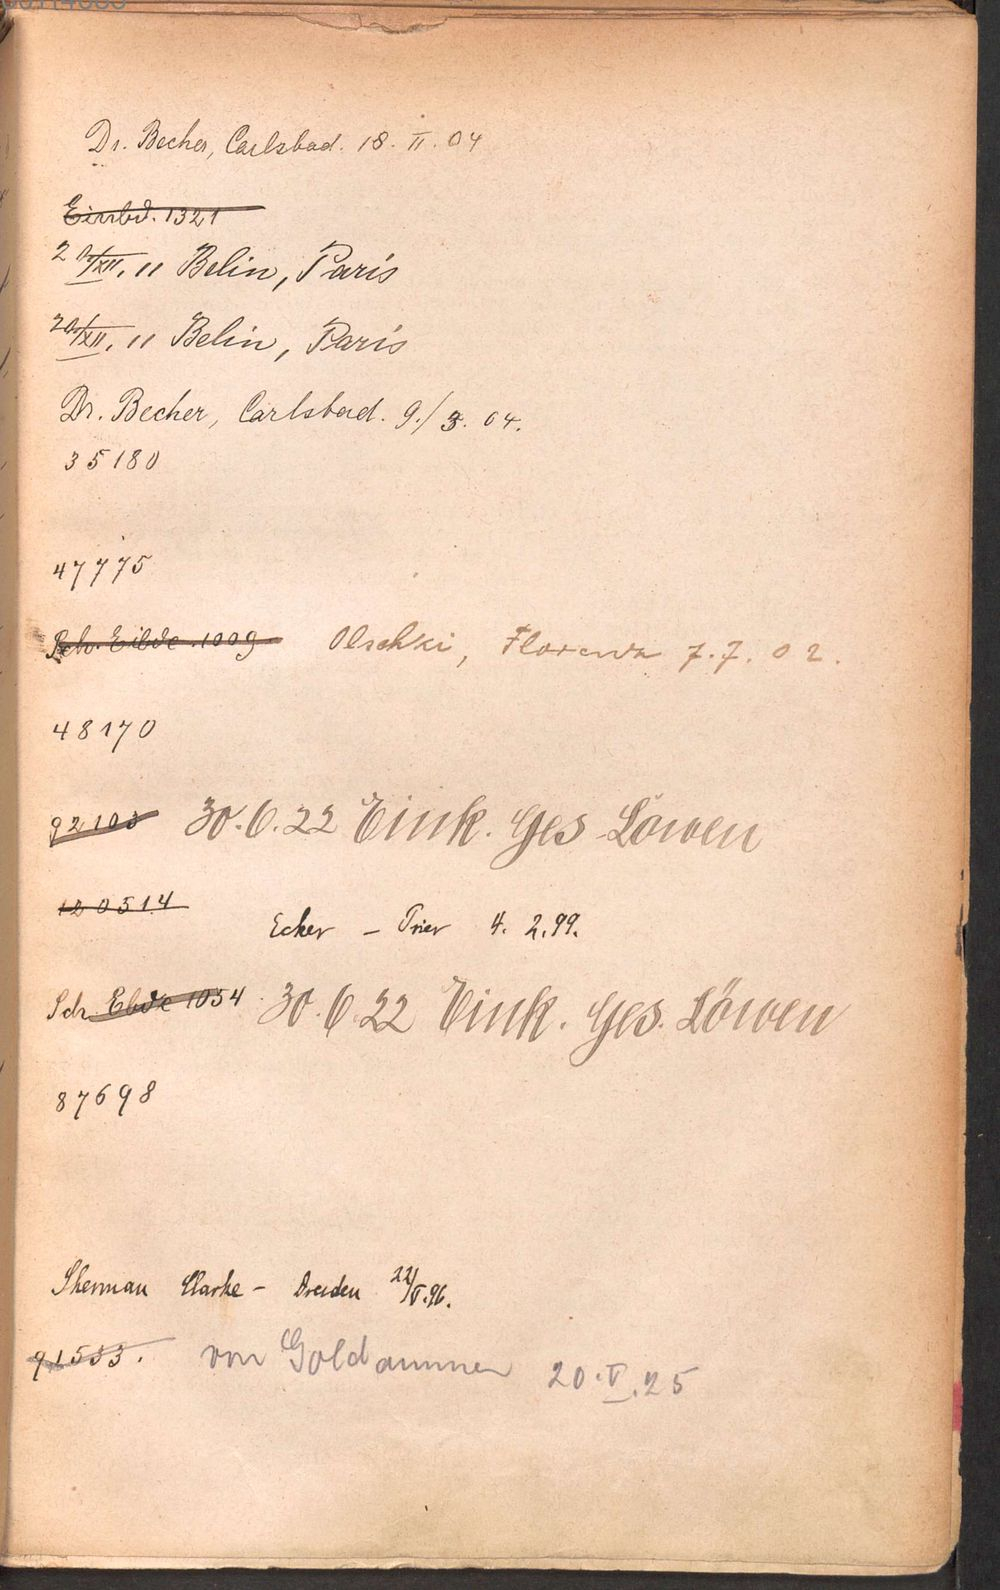 Dr. Becher, Carlsbad. 18. II. 04
Einbd. 1321
20/XII. 11 Belin, Paris
20/XII. 11 Belin, Paris
Dr. Becher, Carlsbad. 9./3. 04.
35180
47775
Sch. Eibde. 1009 Olschki, Florenz 7.7.02.
48170
92103 30.6.22 Eink. Ges Löwen
120514
Ecker - Trier 4. 2. 99.
Sch. Ebde 1054 30.6.22 Eink. Ges. Löwen
87698
Sherman Clarke - Dresden 22/V.96.
91533. von Goldammer 20.V.25